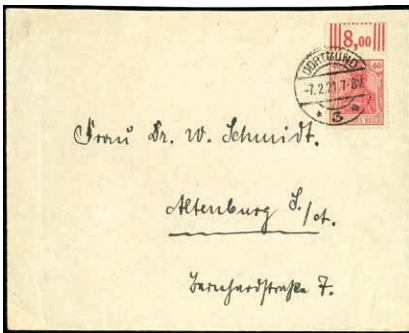 8,00
DORTMUND
-7.2.21.7-8V.
* 3 a
40 40
REICH
Frau Dr. W. Schmidt.
Altenburg S./A.
Bernhardstraße 7.